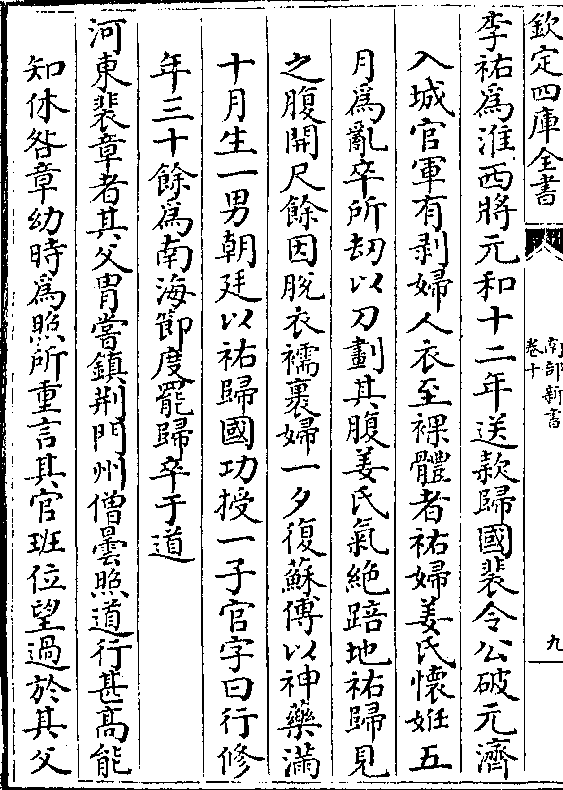 欽定四庫全書
南部新書
卷十
九
李祐為淮西將元和十二年送款歸國裴令公破元濟
入城官軍有剥婦人衣至裸體者祐婦姜氏懷姙五
月為亂卒所刼以刀劃其腹姜氏氣絶踣地祐歸見
之腹開尺餘因脫衣襦裹婦一夕復蘇傅以神藥滿
十月生一男朝廷以祐歸國功授一子官字曰行修
年三十餘為南海節度罷歸卒于道
河東裴章者其父胄嘗鎮荆門州僧曇照道行甚髙能
知休咎章幼時為照所重言其官班位望過於其父